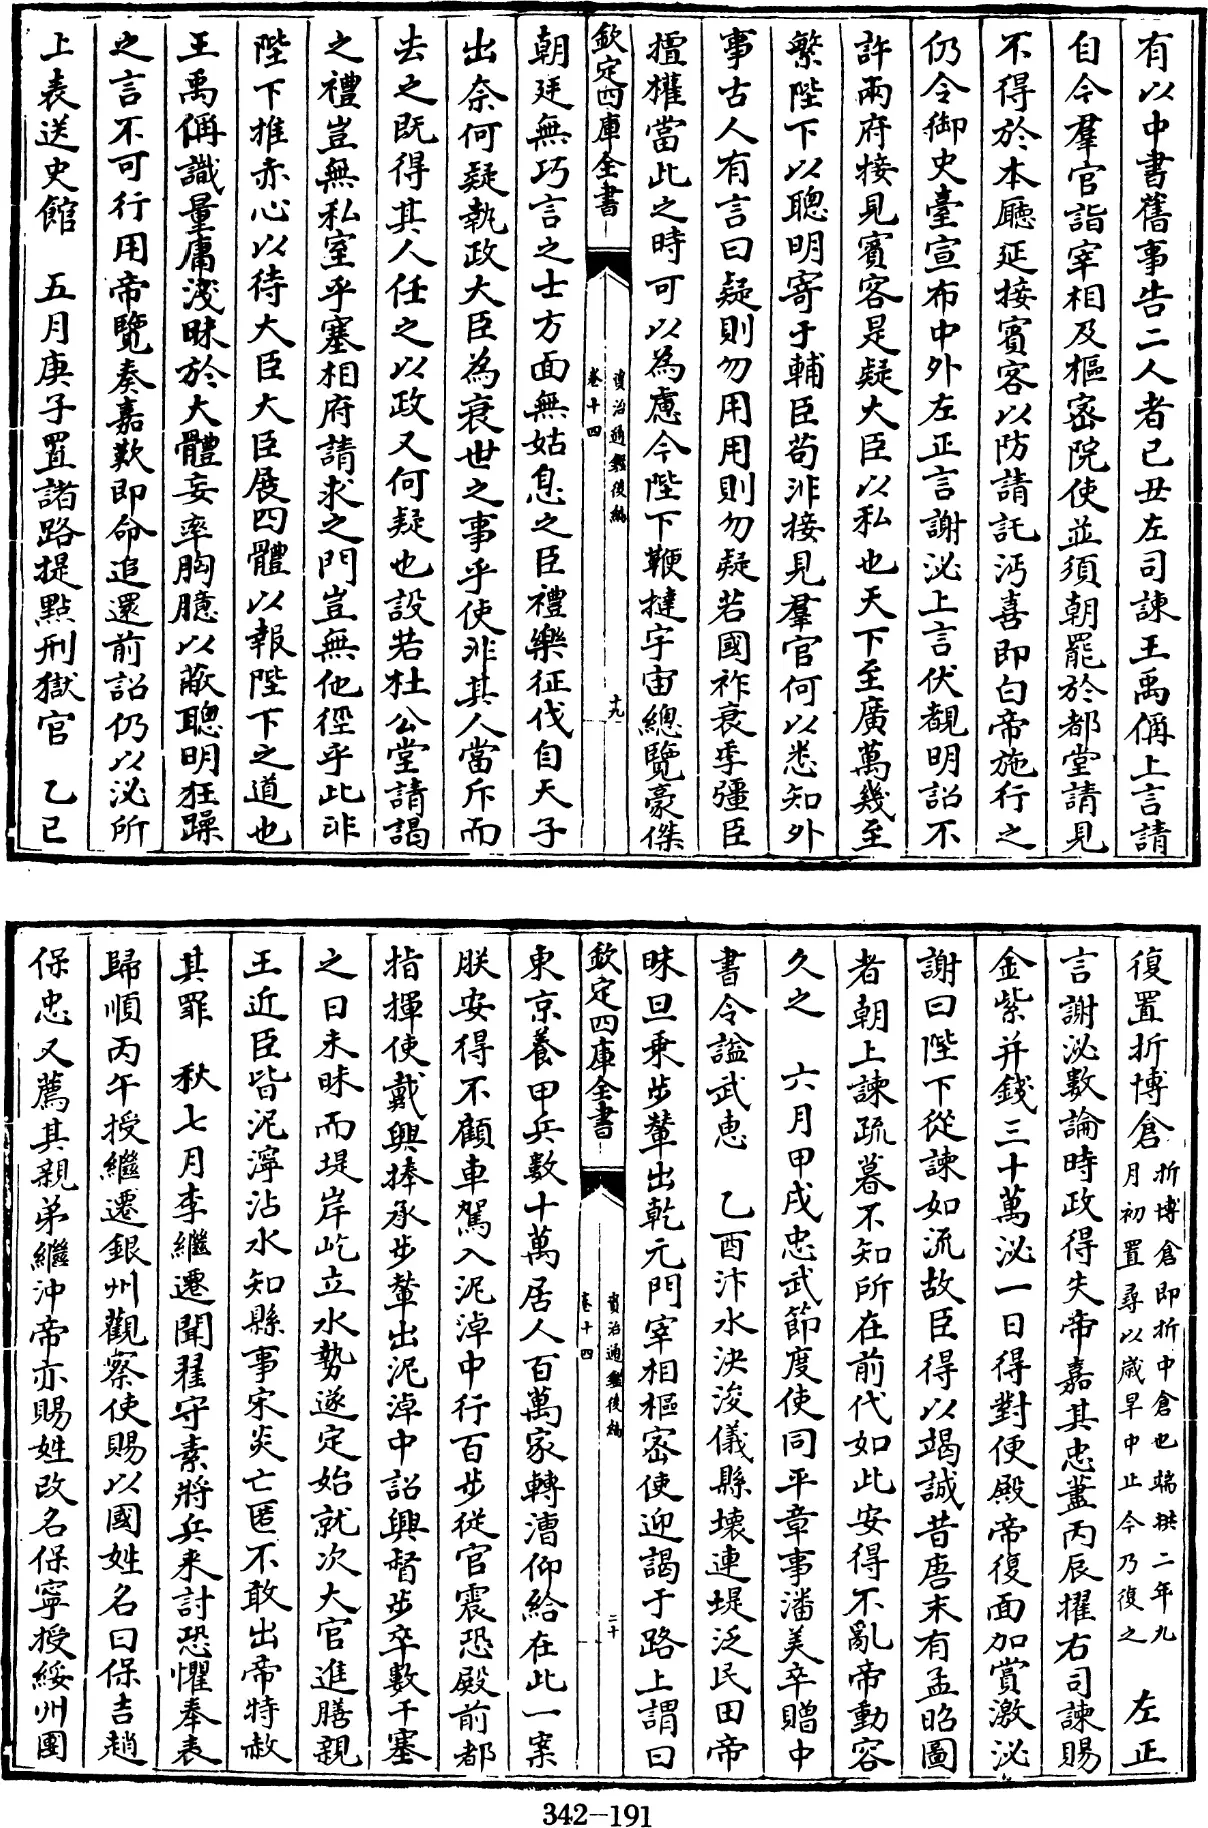 有以中書舊事告二人者己丑左司諫王禹偁上言請
自今羣官詣宰相及樞密院使並須朝罷於都堂請見
不得於本㕔延接賓客以防請託沔喜即白帝施行之
仍令御史臺宣布中外左正言謝泌上言伏覩明詔不
許兩府接見賓客是疑大臣以私也天下至廣萬幾至
繁陛下以聰明寄于輔臣苟非接見羣官何以悉知外
事古人有言曰疑則勿用用則勿疑若國祚衰季彊臣
擅權當此之時可以為慮今陛下鞭撻宇宙總覽豪傑
欽定四庫全書
資治通鑑後編
卷十四
十九
朝廷無巧言之士方面無姑息之臣禮樂征伐自天子
出奈何疑執政大臣為衰世之事乎使非其人當斥而
去之既得其人任之以政又何疑也設若杜公堂請謁
之禮豈無私室乎塞相府請求之門豈無他徑乎此非
陛下推赤心以待大臣大臣展四體以報陛下之道也
王禹偁識量庸淺昧於大體妄率胸臆以蔽聰明狂躁
之言不可行用帝覽奏嘉歎即命追還前詔仍以泌所
上表送史館　五月庚子置諸路提點刑獄官　乙巳
復置折博倉折博倉即折中倉也端拱二年九月初置尋以歲旱中止今乃復之　左正
言謝泌數論時政得失帝嘉其忠藎丙辰擢右司諫賜
金紫并錢三十萬泌一日得對便殿帝復面加賞激泌
謝曰陛下從諫如流故臣得以竭誠昔唐末有孟昭圖
者朝上諫疏暮不知所在前代如此安得不亂帝動容
久之　六月甲戌忠武節度使同平章事潘美卒贈中
書令謚武惠　乙酉汴水決浚儀縣壞連堤泛民田帝
昧旦乘步輦出乾元門宰相樞密使迎謁于路上謂曰
欽定四庫全書
資治通鑑後編
卷十四
二十
東京養甲兵數十萬居人百萬家轉漕仰給在此一渠
朕安得不顧車駕入泥淖中行百步從官震恐殿前都
指揮使戴興捧承步輦出泥淖中詔興督步卒數千塞
之日未昳而堤岸屹立水勢遂定始就次大官進膳親
王近臣皆泥濘沾水知縣事宋炎亡匿不敢出帝特赦
其罪　秋七月李繼遷聞翟守素將兵来討恐懼奉表
歸順丙午授繼遷銀州觀察使賜以國姓名曰保吉趙
保忠又薦其親弟繼沖帝亦賜姓改名保寧授綏州團
342-191